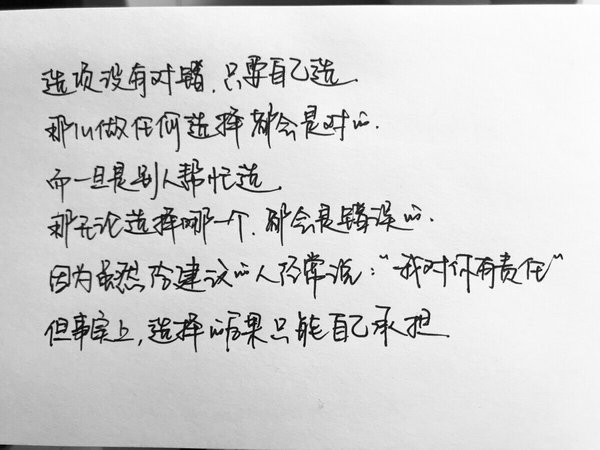 选项没有对错,只要自己选.
那么做任何选择都会是对的.
而一旦是别人帮忙选.
那无论选择哪一个,都会是错误的.
因为虽然给建议的人经常说:“我对你有责任”
但事实上,选择的后果只能自己承担.